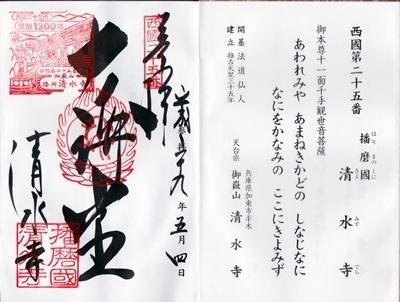 西國第二十五番
播磨國 清水寺
はりまのくに きよみずでら
御本尊十一面千手観世音菩薩
あわれみや あまねきかどの しなじなに
なにをかなみの ここにきよみず
開基 法道仙人
建立 推古天皇三十五年
兵庫県加東市平木
天台宗 御嶽山 清水寺
西國二十五番
奉拝
大講堂
年五月四日
清水寺
1300年
播州清水寺
播磨國
清水寺